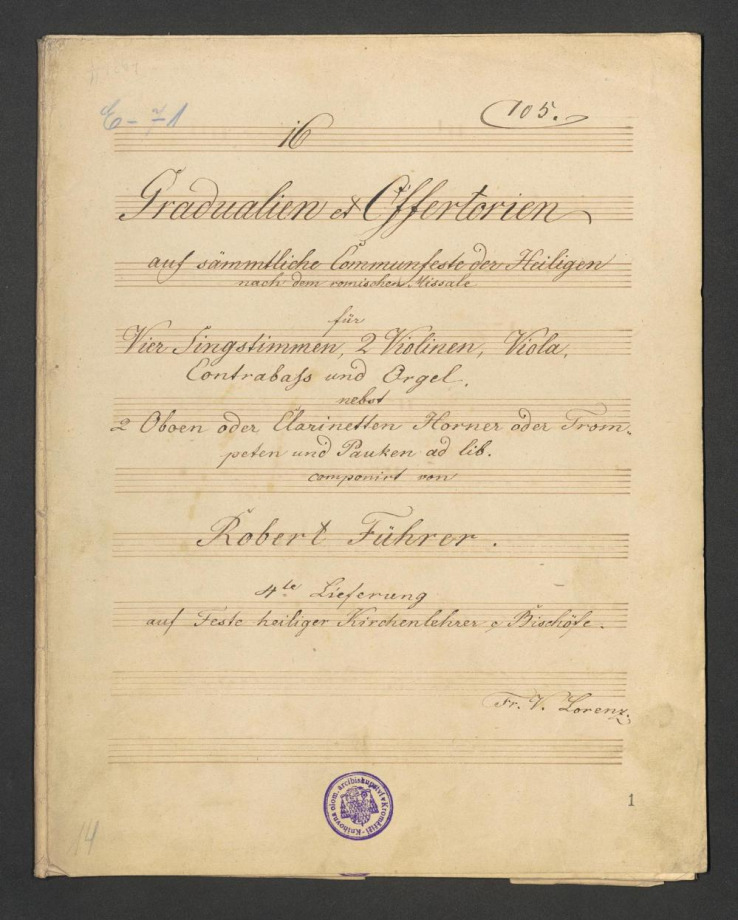 E-71
105.
16
Gradualien et Offertorien
auf sämmtliche Communfeste der Heiligen
nach dem römischen Missale
für
Vier Singstimmen, 2 Violinen, Viola,
Contrabass und Orgel.
nebst
2 Oboen oder Clarinetten Hörner oder Trom-
peten und Pauken ad lib.
componirt von
Robert Führer.
4te Lieferung
auf Feste heiliger Kirchenlehrer e Bischöfe.
Fr. V. Lorenz.
Knihovna olom. arcibiskupství v Kroměříži
1
14